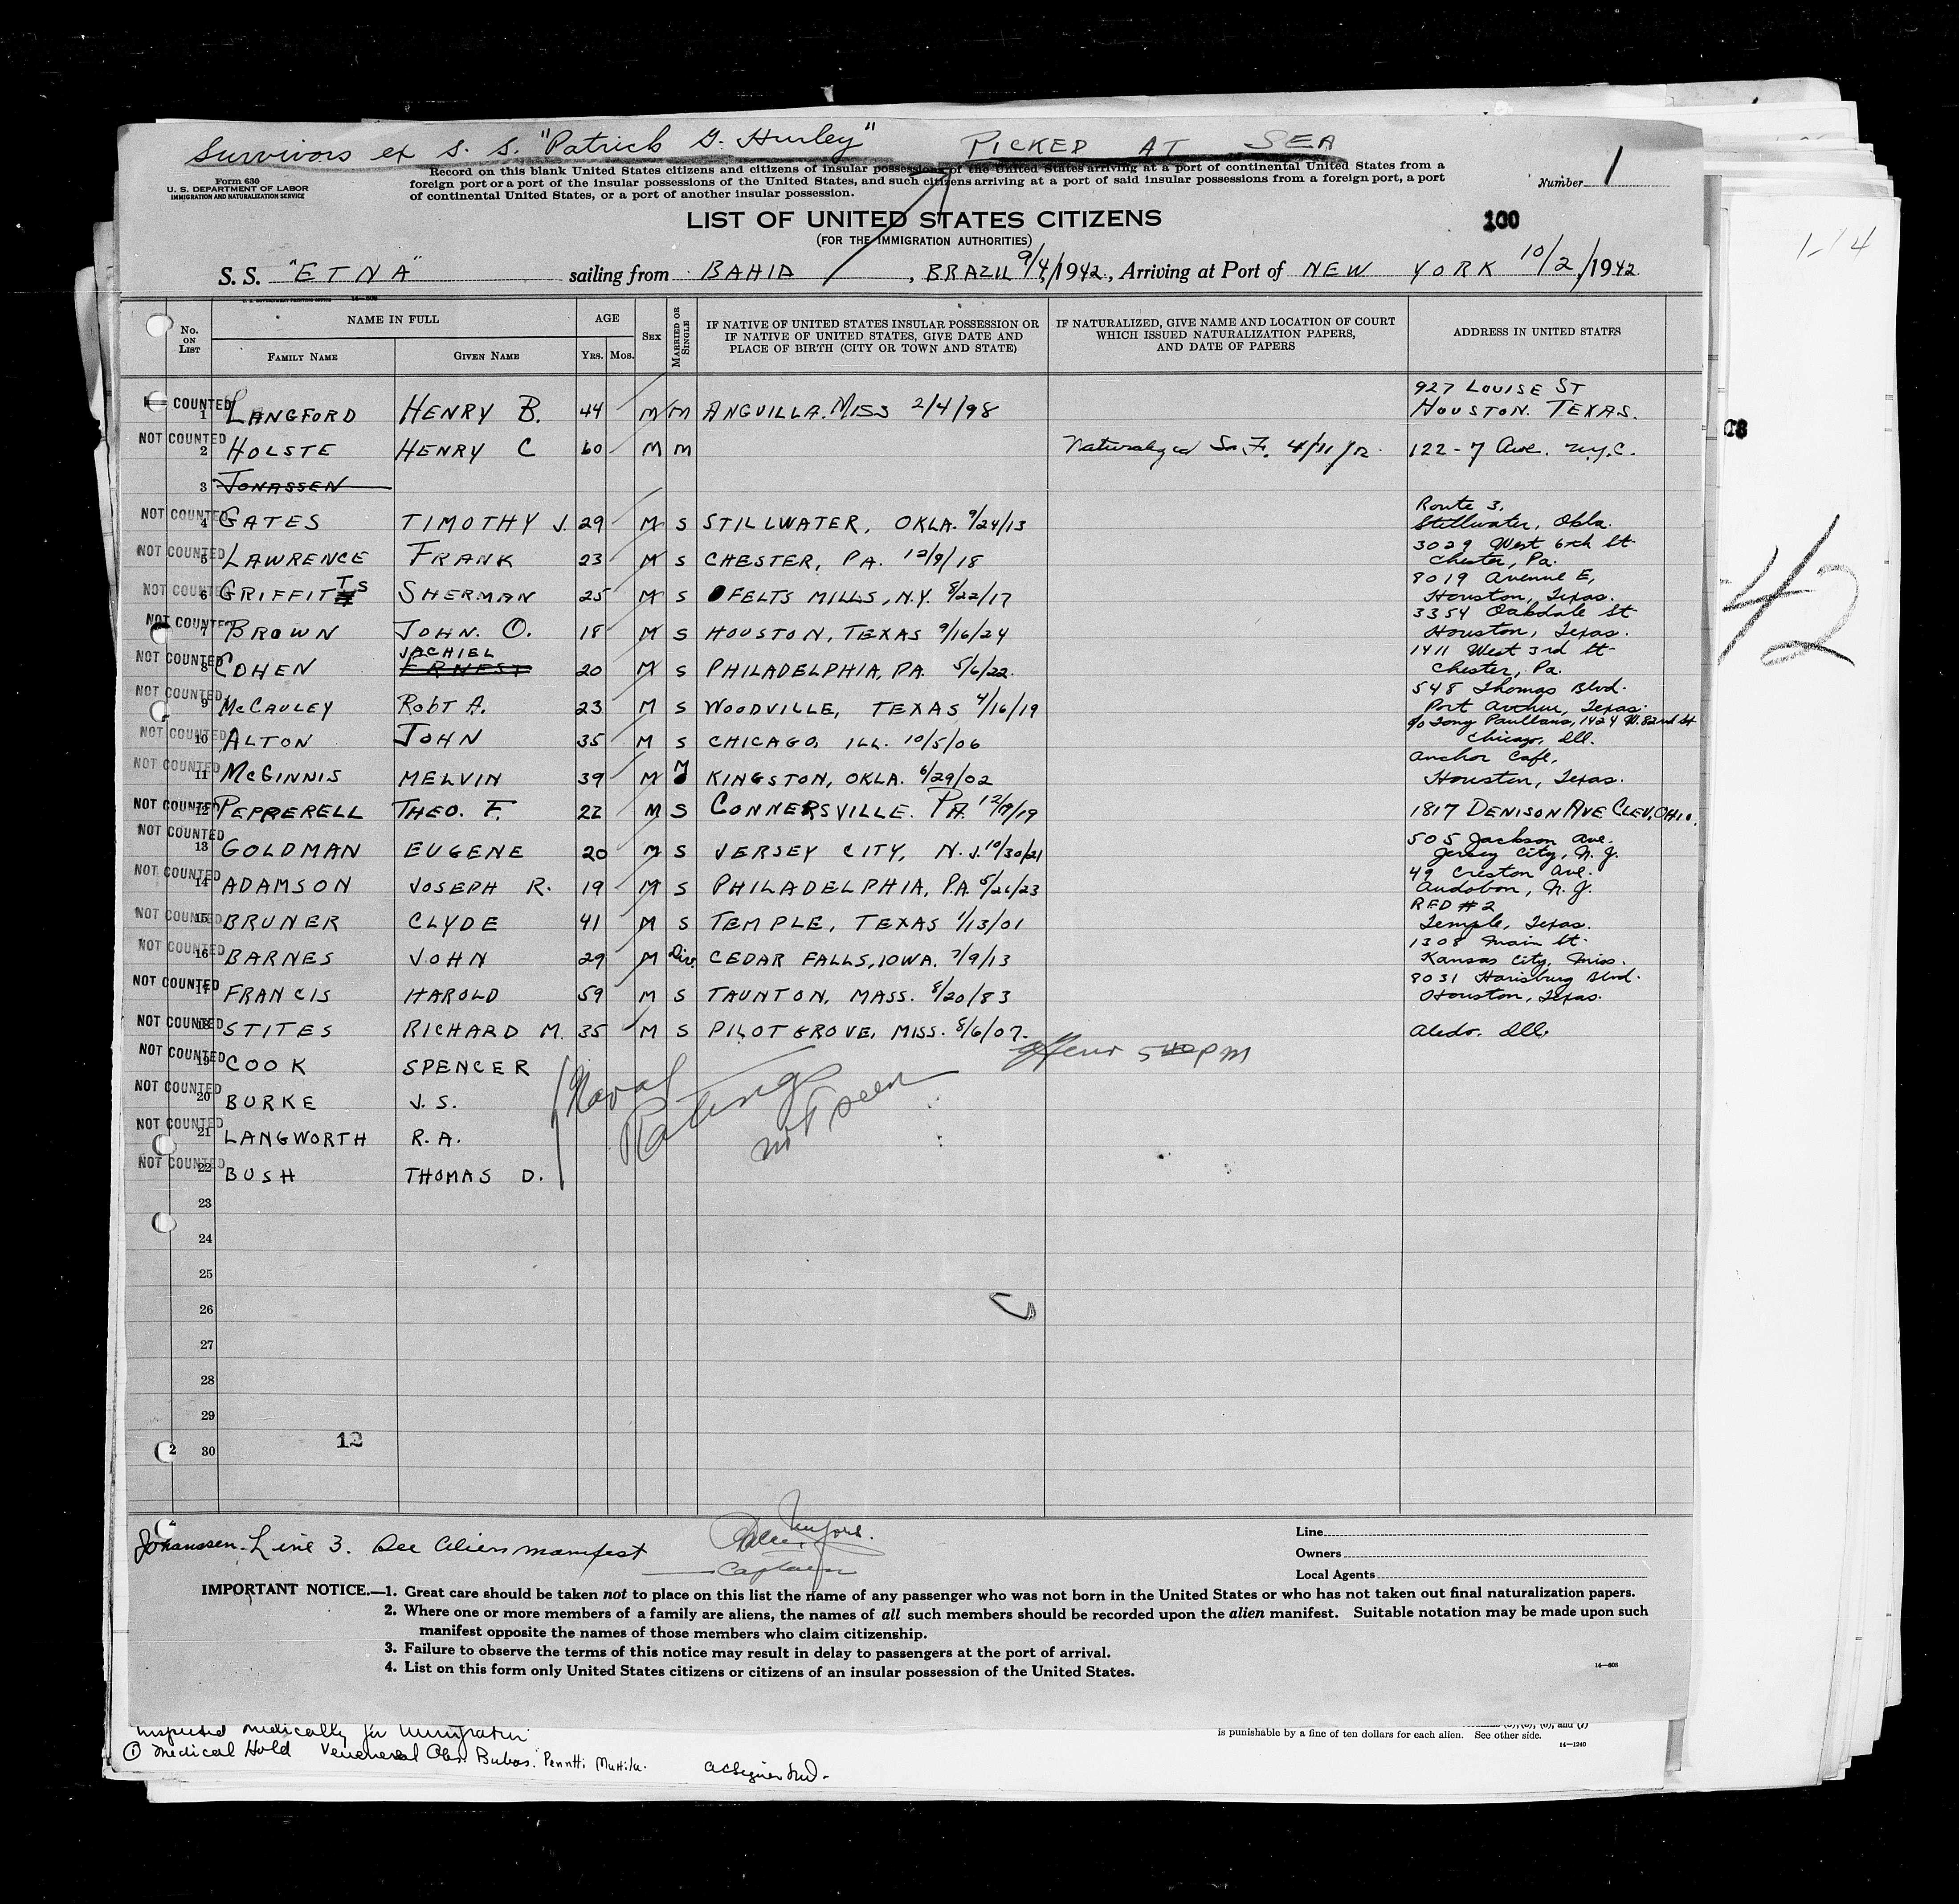 Survivors ex S. S. "Patrick G. Hurley" PICKED AT SEA
Form 630
U. S. DEPARTMENT OF LABOR
IMMIGRATION AND NATURALIZATION SERVICE
Record on this blank United States citizens and citizens of insular possessions of the United States arriving at a port of continental United States from a
foreign port or a port of the insular possessions of the United States, and such citizens arriving at a port of said insular possessions from a foreign port, a port
of continental United States, or a port of another insular possession.
Number 1
LIST OF UNITED STATES CITIZENS
(FOR THE IMMIGRATION AUTHORITIES)
100
1-14
S. S. "ETNA" sailing from BAHIA, BRAZIL 9/4/1942, Arriving at Port of NEW YORK 10/2/1942
No. ON LIST
NAME IN FULL
FAMILY NAME
GIVEN NAME
AGE
YRS. MOS.
SEX
MARRIED OR SINGLE
IF NATIVE OF UNITED STATES INSULAR POSSESSION OR
IF NATIVE OF UNITED STATES, GIVE DATE AND
PLACE OF BIRTH (CITY OR TOWN AND STATE)
IF NATURALIZED, GIVE NAME AND LOCATION OF COURT
WHICH ISSUED NATURALIZATION PAPERS,
AND DATE OF PAPERS
ADDRESS IN UNITED STATES
COUNTED 1 LANGFORD HENRY B. 44 M M ANGUILLA. MISS 2/4/98 927 LOUISE ST HOUSTON. TEXAS.
NOT COUNTED 2 HOLSTE HENRY C 60 M M Naturalized 122-7 Ave. N.Y.C.
3 JONASSEN
NOT COUNTED 4 GATES TIMOTHY J. 29 M S STILLWATER, OKLA. 9/24/13 Route 3, Stillwater, Okla.
NOT COUNTED 5 LAWRENCE FRANK 23 M S CHESTER, PA. 12/9/18 3029 West 6th St Chester, Pa.
NOT COUNTED 6 GRIFFITTS SHERMAN 25 M S FELTS MILLS, N.Y. 8/22/17 8019 Avenue E, Houston, Texas.
NOT COUNTED 7 BROWN JOHN. O. 18 M S HOUSTON, TEXAS 9/16/24 3354 Oakdale St Houston, Texas.
NOT COUNTED 8 COHEN JACHIEL ERNEST 20 M S PHILADELPHIA, PA. 5/6/22. 1411 West 3rd St. Chester, Pa.
NOT COUNTED 9 McCAULEY ROBT A. 23 M S WOODVILLE, TEXAS 4/16/19 548 Thomas Blvd. Port Arthur, Texas.
NOT COUNTED 10 ALTON JOHN 35 M S CHICAGO, ILL. 10/5/06 c/o Tony Paullaus, 1424 W. 82nd St Chicago, Ill.
NOT COUNTED 11 McGINNIS MELVIN 39 M M KINGSTON, OKLA. 6/29/02 Anchor Cafe, Houston, Texas.
NOT COUNTED 12 PEPPERELL THEO. F. 22 M S CONNERSVILLE. PA. 1817 DENISON AVE CLEV, OHIO.
NOT COUNTED 13 GOLDMAN EUGENE 20 M S JERSEY CITY, N. J. 10/30/21 505 Jackson Ave. Jersey City, N. J.
NOT COUNTED 14 ADAMSON JOSEPH R. 19 M S PHILADELPHIA, PA. 5/26/23 49 Creston Ave. Audobon, N. J.
NOT COUNTED 15 BRUNER CLYDE 41 M S TEMPLE, TEXAS 1/13/01 RFD #2 Temple, Texas.
NOT COUNTED 16 BARNES JOHN 29 M Div. CEDAR FALLS, IOWA. 7/9/13 1308 Main St. Kansas City, Miss.
NOT COUNTED 17 FRANCIS HAROLD 59 M S TAUNTON, MASS. 8/20/83 8031 Harisburg Blvd. Houston, Texas.
NOT COUNTED 18 STITES RICHARD M. 35 M S PILOT GROVE, MISS. 8/6/07. Aledo. Ill.
NOT COUNTED 19 COOK SPENCER
NOT COUNTED 20 BURKE J. S.
NOT COUNTED 21 LANGWORTH R. A.
NOT COUNTED 22 BUSH THOMAS D.
Naval Ratings not seen
PM
42
23
24
25
26
27
28
29
12
30
Johanssen - Line 3. See Aliens manifest
Captain
Line
Owners
Local Agents
IMPORTANT NOTICE.—1. Great care should be taken not to place on this list the name of any passenger who was not born in the United States or who has not taken out final naturalization papers.
2. Where one or more members of a family are aliens, the names of all such members should be recorded upon the alien manifest. Suitable notation may be made upon such
manifest opposite the names of those members who claim citizenship.
3. Failure to observe the terms of this notice may result in delay to passengers at the port of arrival.
4. List on this form only United States citizens or citizens of an insular possession of the United States.
14—608
Inspected medically for Immigration
is punishable by a fine of ten dollars for each alien. See other side.
14—1240
① Medical Hold Penntti Muhilu.